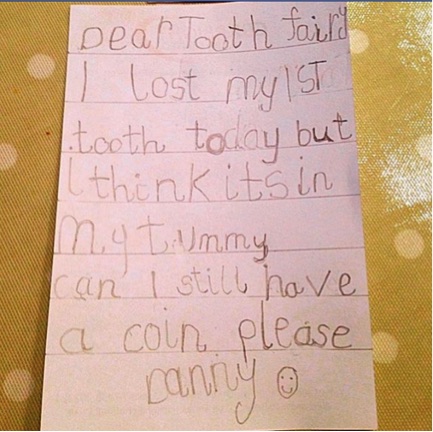 Dear Tooth fairy
I lost my 1ST
tooth today but
I think its in
my tummy
can I still have
a coin please
Danny